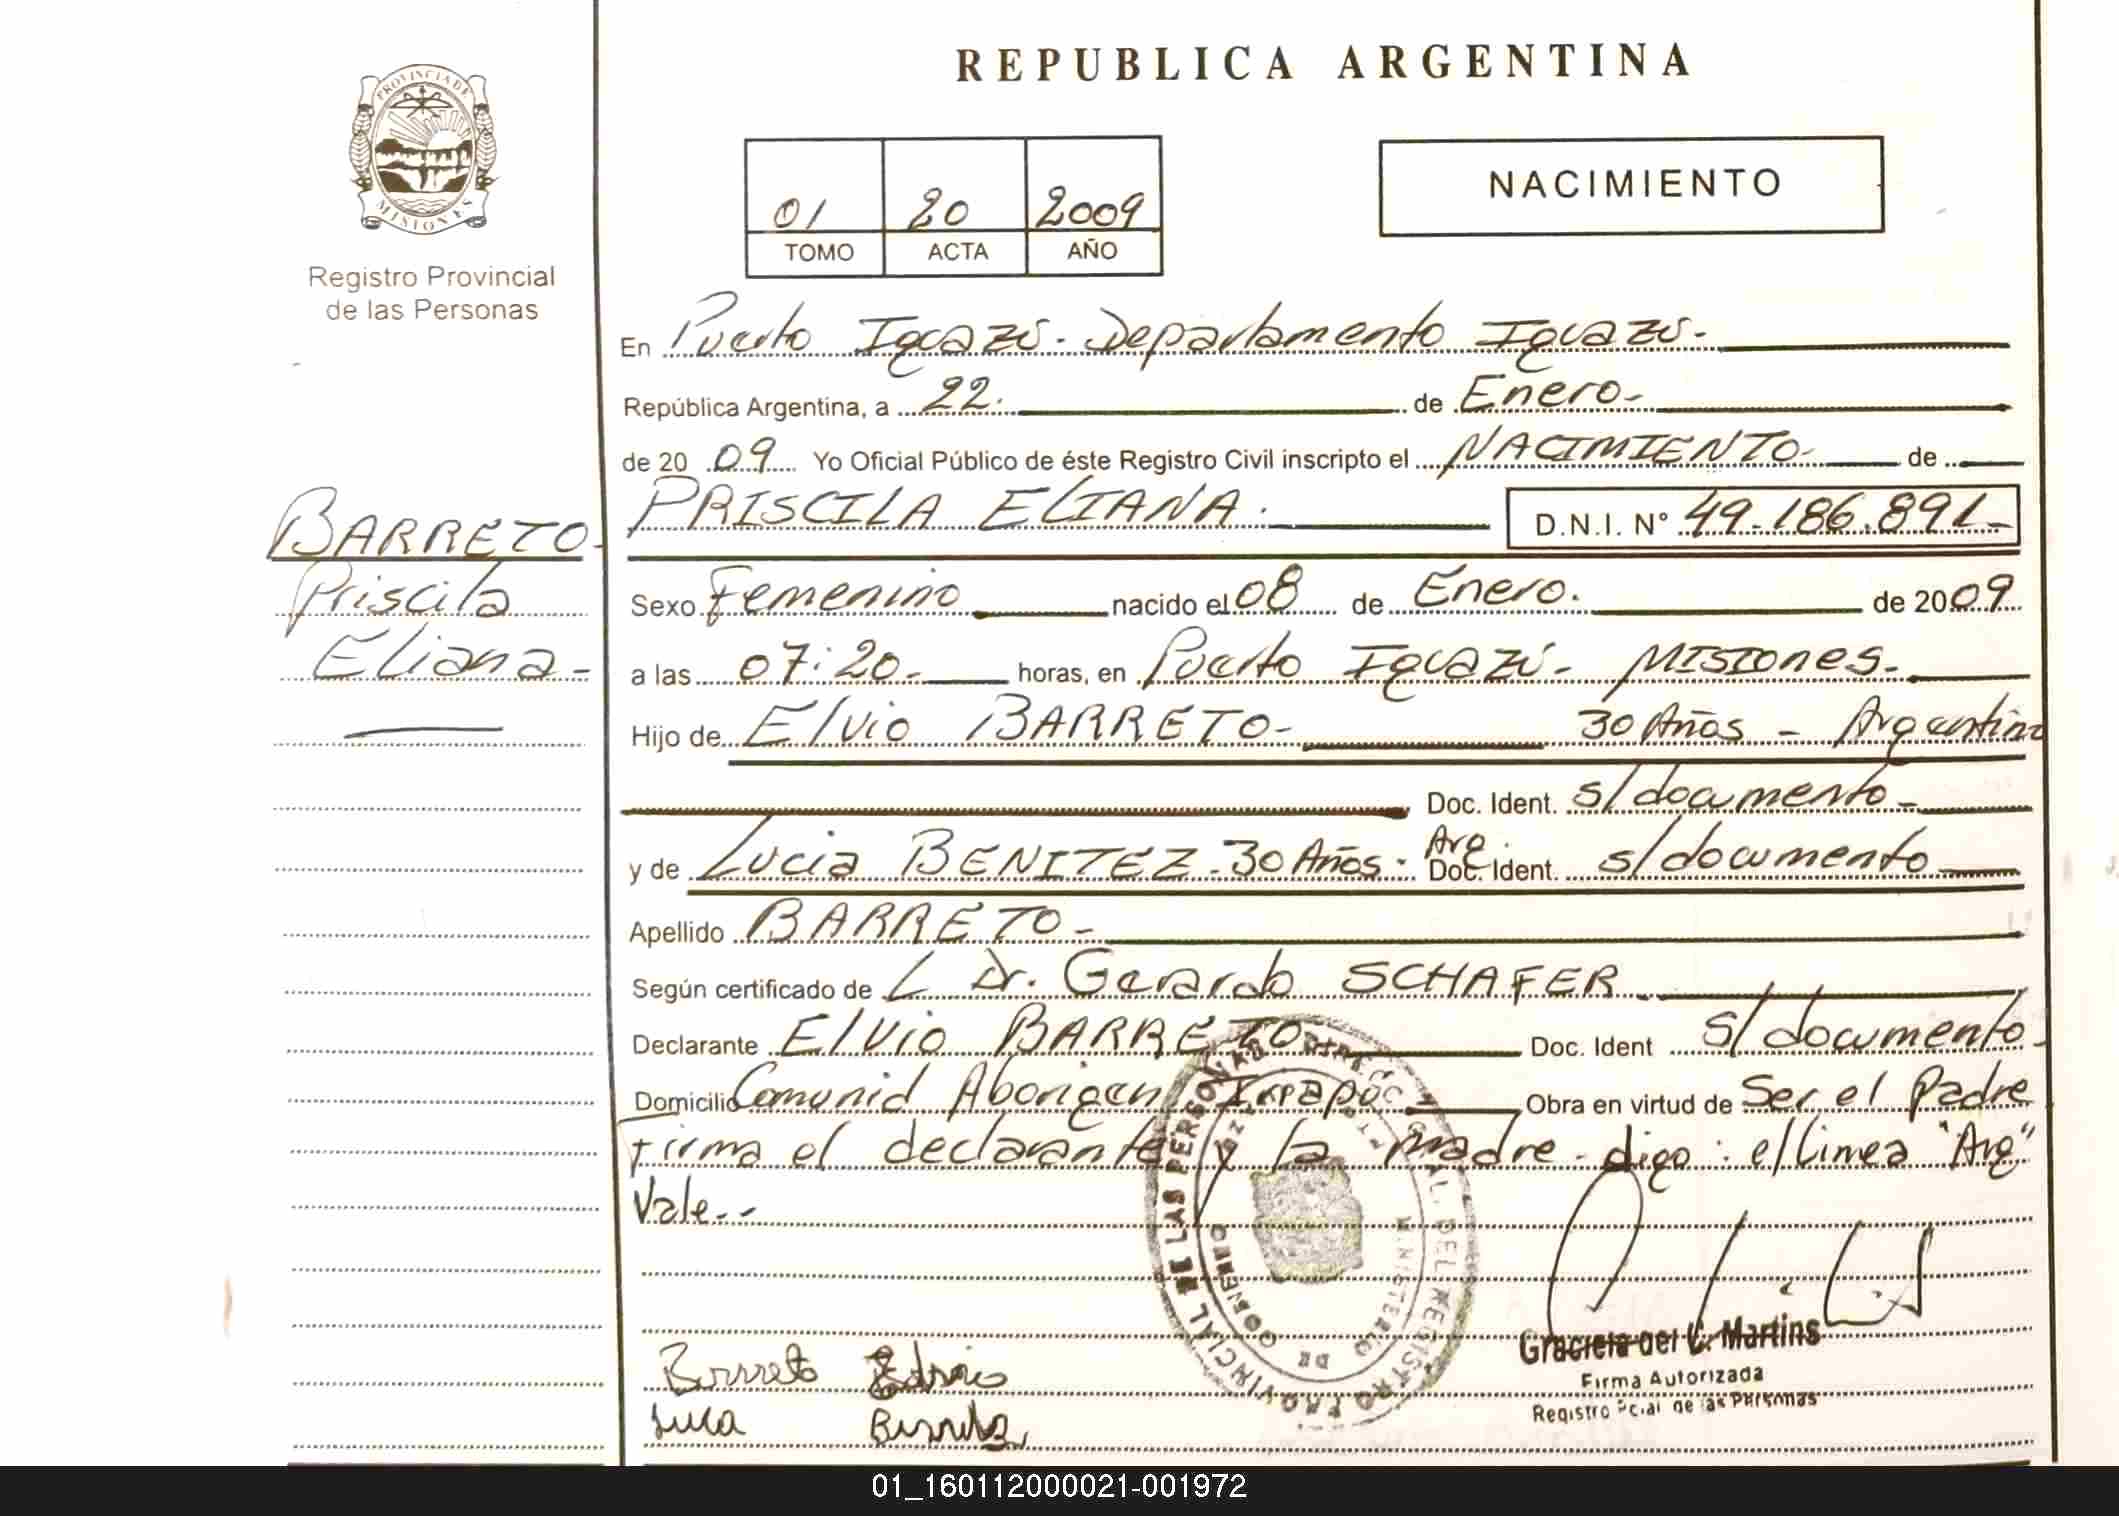 REPUBLICA ARGENTINA
PROVINCIA DE
MISIONES
Registro Provincial
de las Personas
01 20 2009
TOMO ACTA AÑO
NACIMIENTO
En Puerto Iguazú. Departamento Iguazú.
República Argentina, a 22. de Enero-
de 20 09 Yo Oficial Público de éste Registro Civil inscripto el NACIMIENTO- de
PRISCILA ELIANA. D.N.I. N° 49.186.891-
BARRETO-
Priscila
Eliana-
Sexo Femenino nacido el 08 de Enero. de 2009
a las 07:20- horas, en Puerto Iguazú- MISIONES.
Hijo de Elvio BARRETO- 30 Años - Argentino
Doc. Ident. s/documento-
y de Lucia BENITEZ-30 Años- Arg. Doc. Ident. s/documento
Apellido BARRETO-
Según certificado de L Dr. Gerardo SCHAFER
Declarante Elvio BARRETO Doc. Ident s/documento-
Domicilio Comunid Aborigen Obra en virtud de Ser el Padre
Firma el declarante y la madre- digo: e/linea "Arg"
Vale--
PROVINCIAL DE LAS PERSONAS
DEL REGISTRO
MINISTERIO DE GOBIERNO
Graciela del C. Martins
Firma Autorizada
Registro Pcial de las Personas
Barreto
01_160112000021-001972